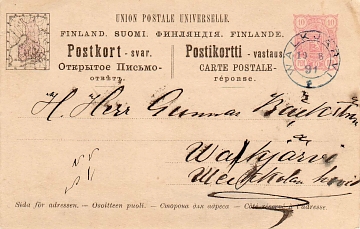 UNION POSTALE UNIVERSELLE.
FINLAND. SUOMI. ФИНЛЯНДІЯ. FINLANDE.
Postkort - svar. Postikortti - vastaus.
Открытое Письмо- CARTE POSTALE-
отвѣтъ. réponse.
10 10
WALKJÄRVI
91
H. Herr Gunnar
Walkjärvi
Sida för adressen. - Osoitteen puoli. - Сторона для адреса - Côté réservé à l'adresse